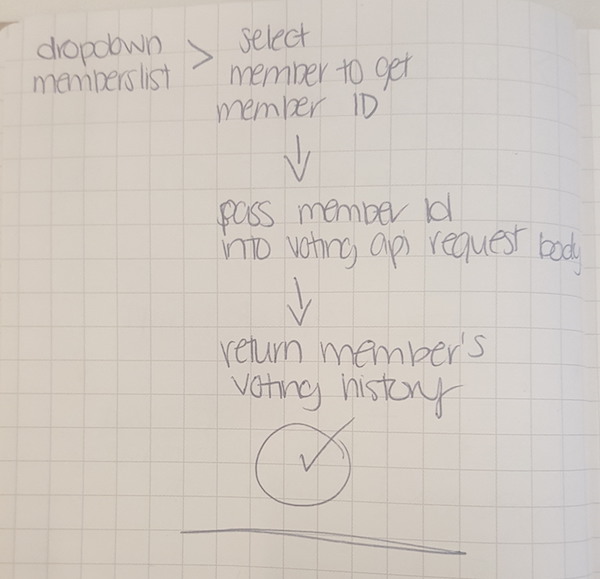 dropdown
memberslist
>
select
member to get
member ID
pass member Id
into voting api request body
return member's
voting history